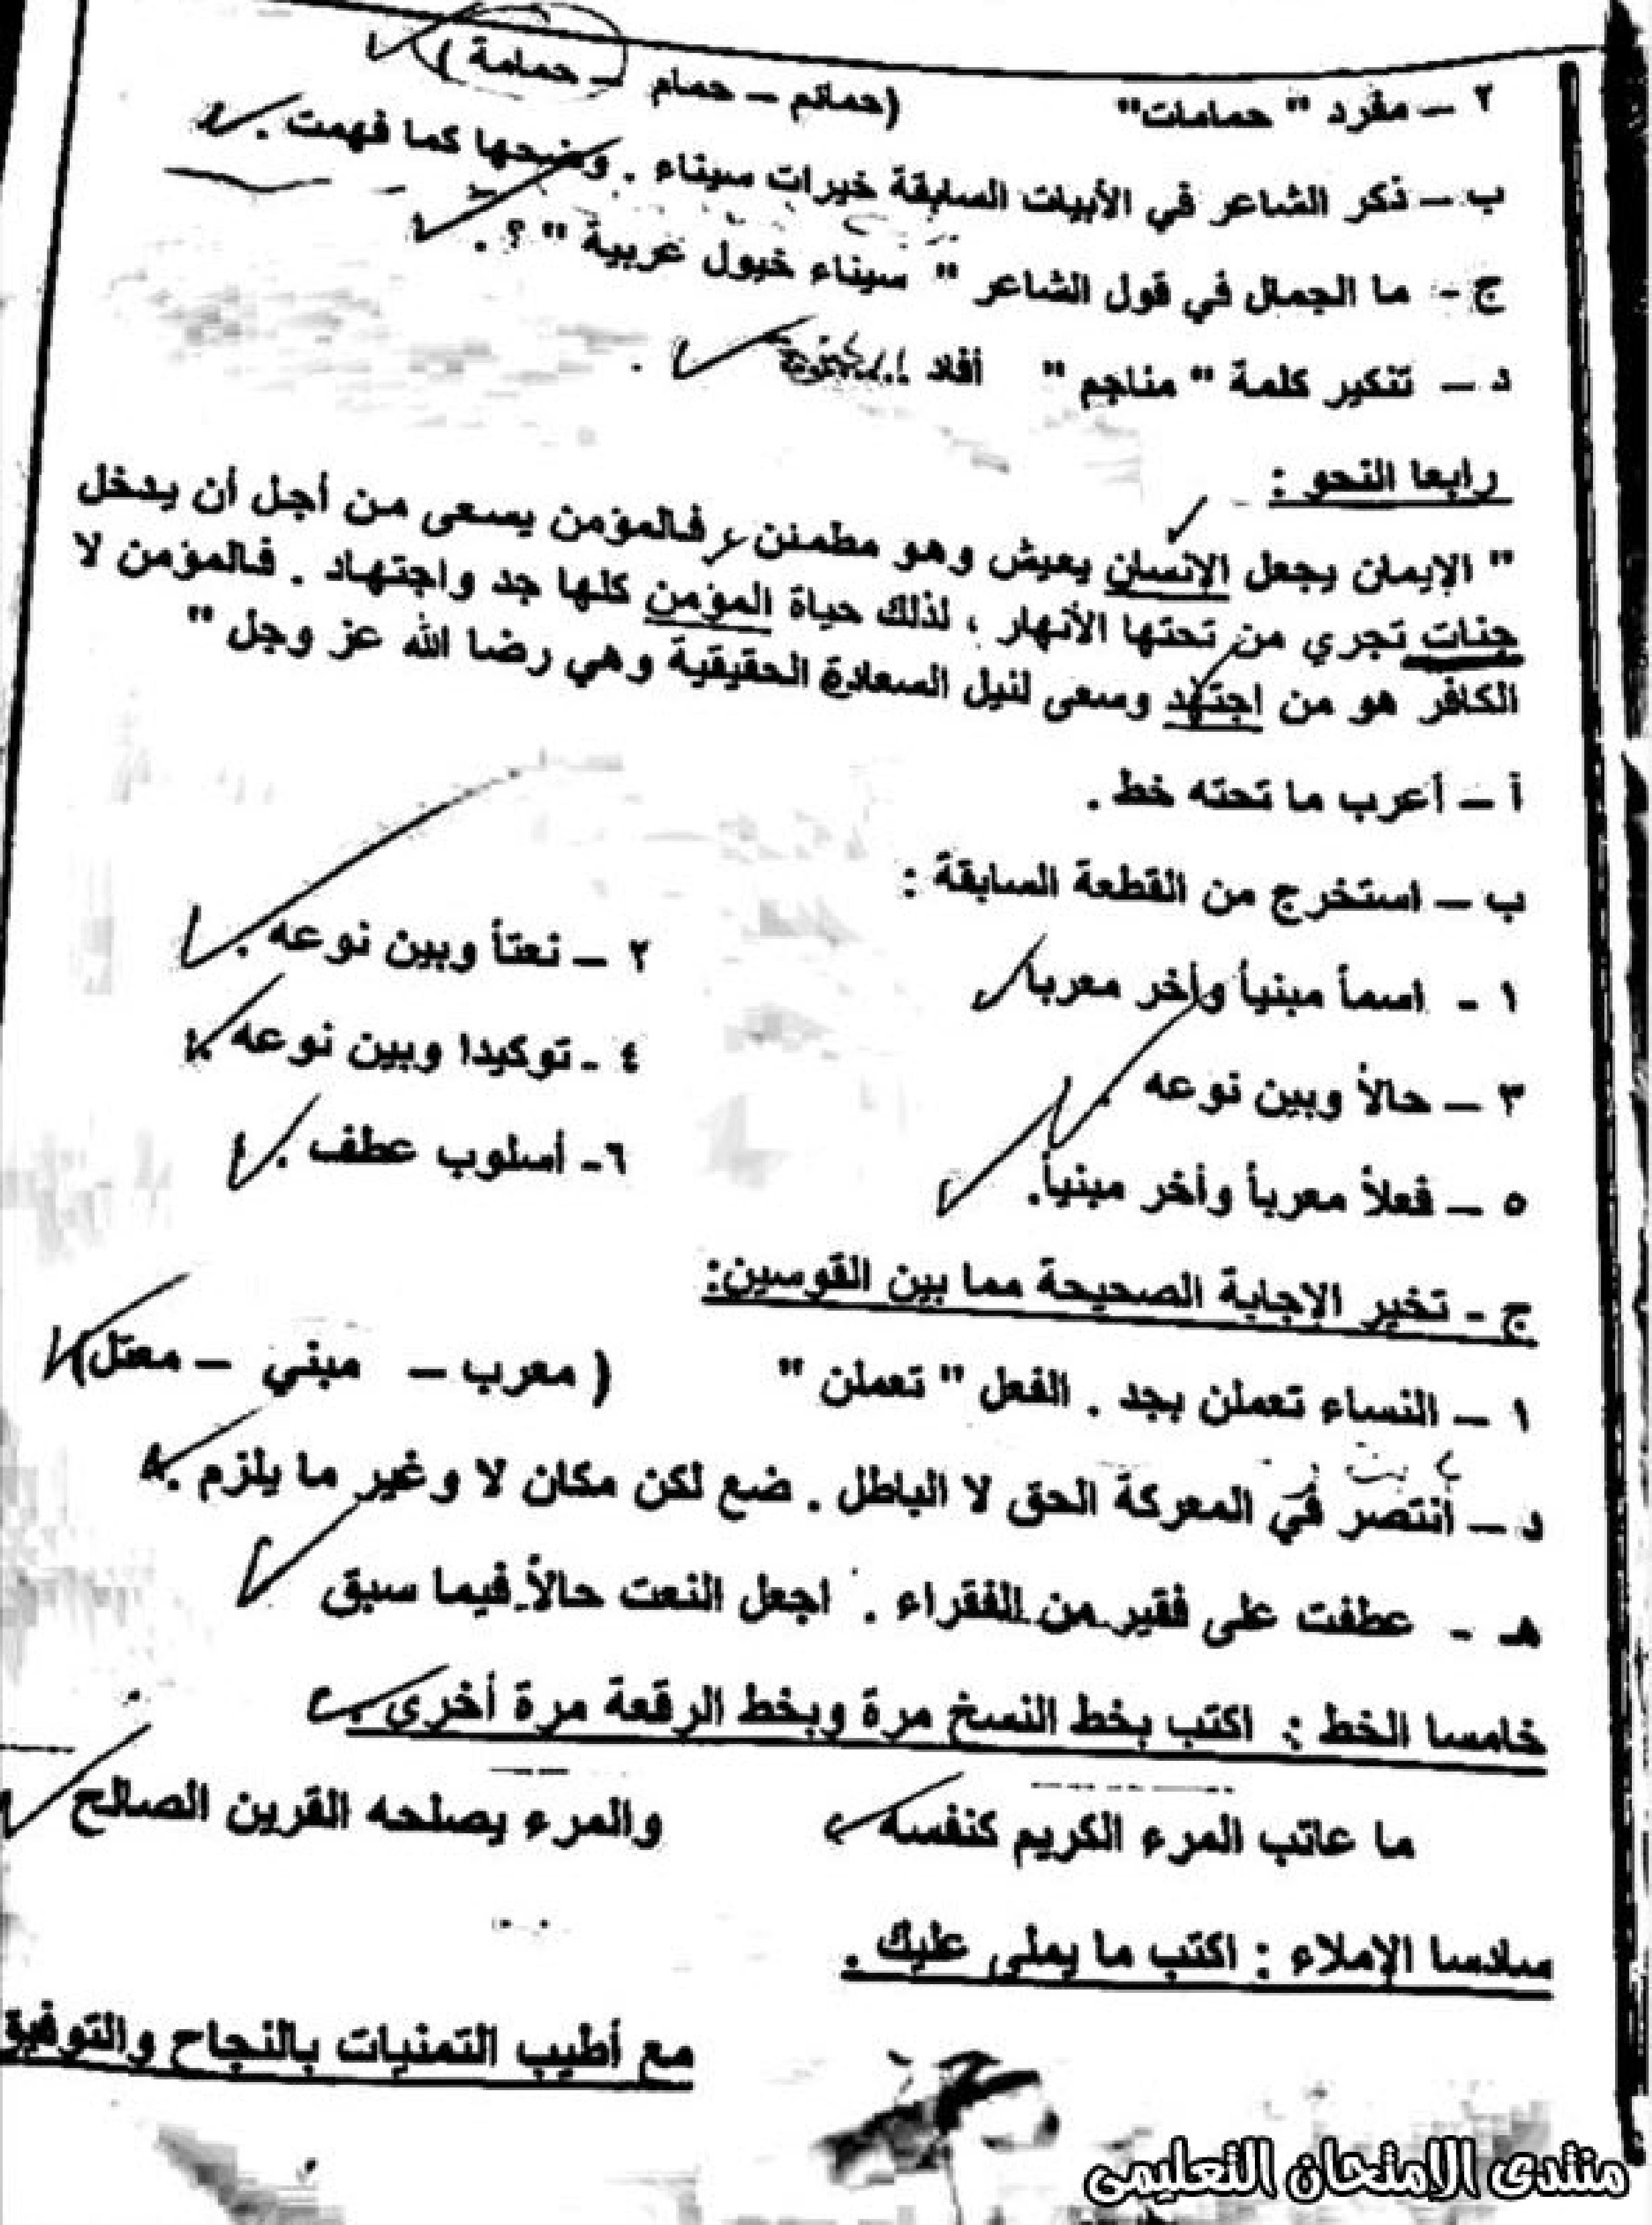 ٢ – مفرد " حمامات" (حمائم – حمام – حمامة )
ب – ذكر الشاعر في الأبيات السابقة خيرات سيناء . وضحها كما فهمت .
ج - ما الجمال في قول الشاعر " سيناء خيول عربية " ؟ .
د – تنكير كلمة " مناجم " أفاد .
رابعا النحو :
" الإيمان يجعل الإنسان يعيش وهو مطمئن ، فالمؤمن يسعى من أجل أن يدخل
جنات تجري من تحتها الأنهار ، لذلك حياة المؤمن كلها جد واجتهاد . فالمؤمن لا
الكافر هو من اجتهد وسعى لنيل السعادة الحقيقية وهي رضا الله عز وجل "
أ – أعرب ما تحته خط .
ب – استخرج من القطعة السابقة :
١ - اسماً مبنياً وأخر معربا ٢ – نعتاً وبين نوعه .
٣ – حالاً وبين نوعه . ٤ - توكيدا وبين نوعه .
٥ – فعلاً معرباً وأخر مبنياً. ٦- أسلوب عطف .
ج - تخير الإجابة الصحيحة مما بين القوسين:
١ – النساء تعملن بجد . الفعل " تعملن " ( معرب – مبني – معتل)
د – أنتصر في المعركة الحق لا الباطل . ضع لكن مكان لا وغير ما يلزم .
هـ - عطفت على فقير من الفقراء . اجعل النعت حالاً فيما سبق
خامسا الخط : اكتب بخط النسخ مرة وبخط الرقعة مرة أخرى .
ما عاتب المرء الكريم كنفسه والمرء يصلحه القرين الصالح
سادسا الإملاء : اكتب ما يملى عليك .
مع أطيب التمنيات بالنجاح والتوفيق
منتدى الامتحان التعليمى